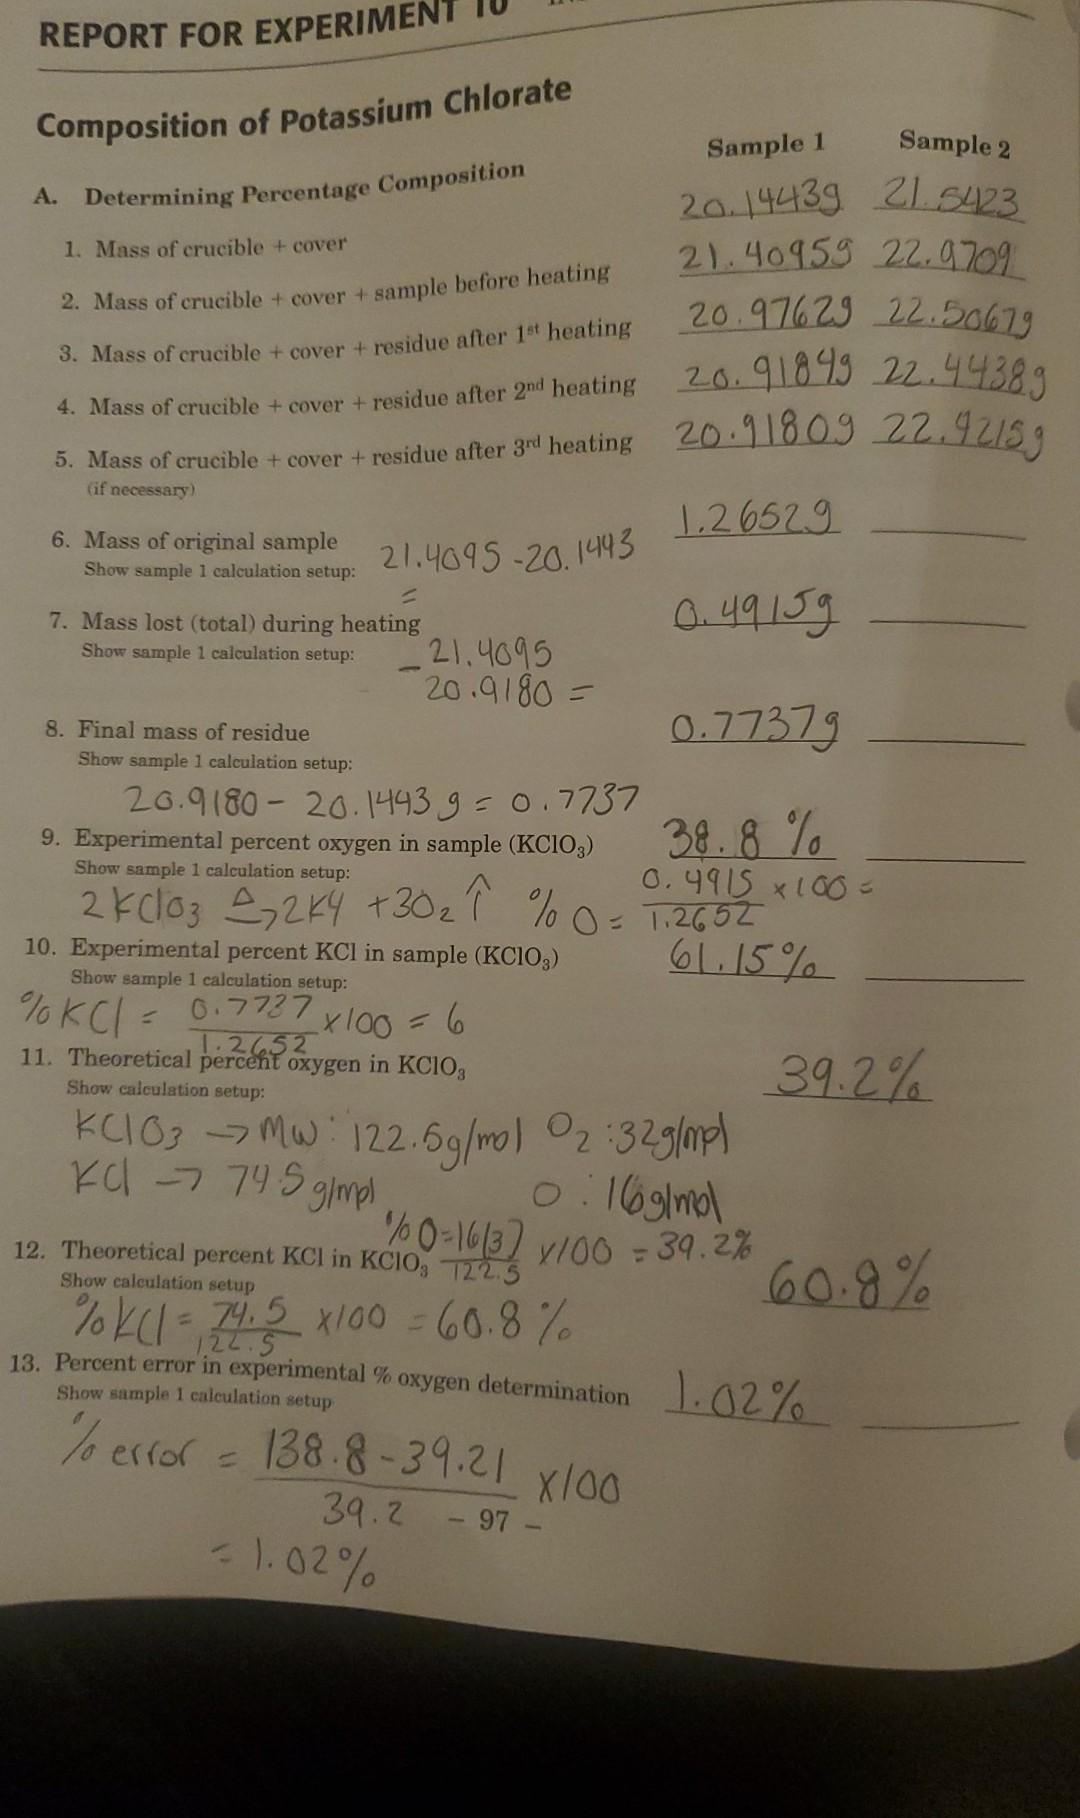 REPORT FOR EXPERIMENT 10
Composition of Potassium Chlorate
Sample 1 Sample 2
A. Determining Percentage Composition
1. Mass of crucible + cover 20.1443g 21.5423
2. Mass of crucible + cover + sample before heating 21.4095g 22.9709
3. Mass of crucible + cover + residue after 1st heating 20.9762g 22.5067g
4. Mass of crucible + cover + residue after 2nd heating 20.9184g 22.4438g
5. Mass of crucible + cover + residue after 3rd heating 20.9180g 22.4215g
(if necessary)
6. Mass of original sample 1.2652g
Show sample 1 calculation setup: 21.4095 - 20.1443
=
7. Mass lost (total) during heating 0.4915g
Show sample 1 calculation setup: - 21.4095
20.9180 =
8. Final mass of residue 0.7737g
Show sample 1 calculation setup:
20.9180 - 20.1443 g = 0.7737
9. Experimental percent oxygen in sample (KClO3) 38.8 %
Show sample 1 calculation setup: 0.4915 x 100 =
2 KClO3 Δ→ 2KCl + 3O2 ↑ % O = 1.2652
10. Experimental percent KCl in sample (KClO3) 61.15%
Show sample 1 calculation setup:
% KCl = 0.7737 x100 = 6
1.2652
11. Theoretical percent oxygen in KClO3 39.2%
Show calculation setup:
KClO3 → MW: 122.5g/mol O2 : 32g/mol
KCl → 74.5 g/mol O : 16g/mol
% O = 16(3) x100 = 39.2%
122.5
12. Theoretical percent KCl in KClO3 60.8%
Show calculation setup
% KCl = 74.5 x100 = 60.8 %
122.5
13. Percent error in experimental % oxygen determination 1.02%
Show sample 1 calculation setup
% error = |38.8 - 39.2| x100
39.2
- 97 -
= 1.02%